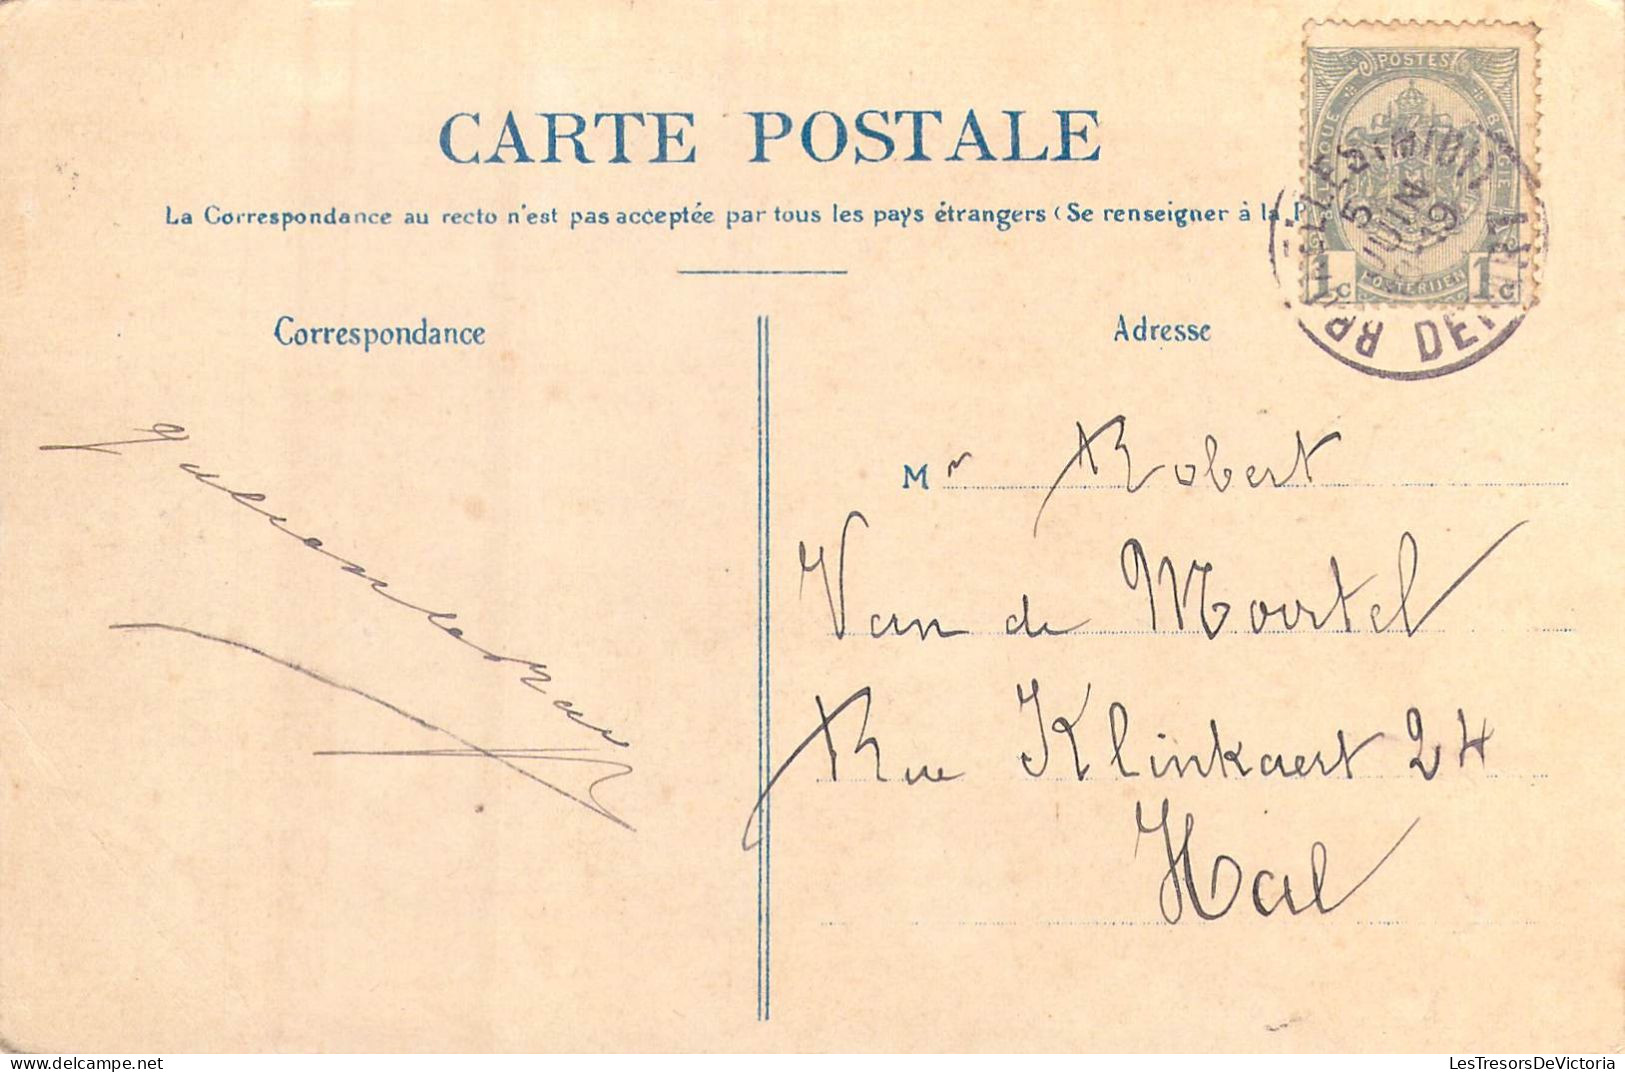 CARTE POSTALE
La Correspondance au recto n'est pas acceptée par tous les pays étrangers (Se renseigner à la P
POSTES
BELGIQUE BELGIE
POSTERIJEN
1c 1c
5 JUIN 19
DEPART
Correspondance
Adresse
Mr Robert
Van de Moortel
Rue Klinkaert 24
Hal
LesTresorsDeVictoria
delcampe.net